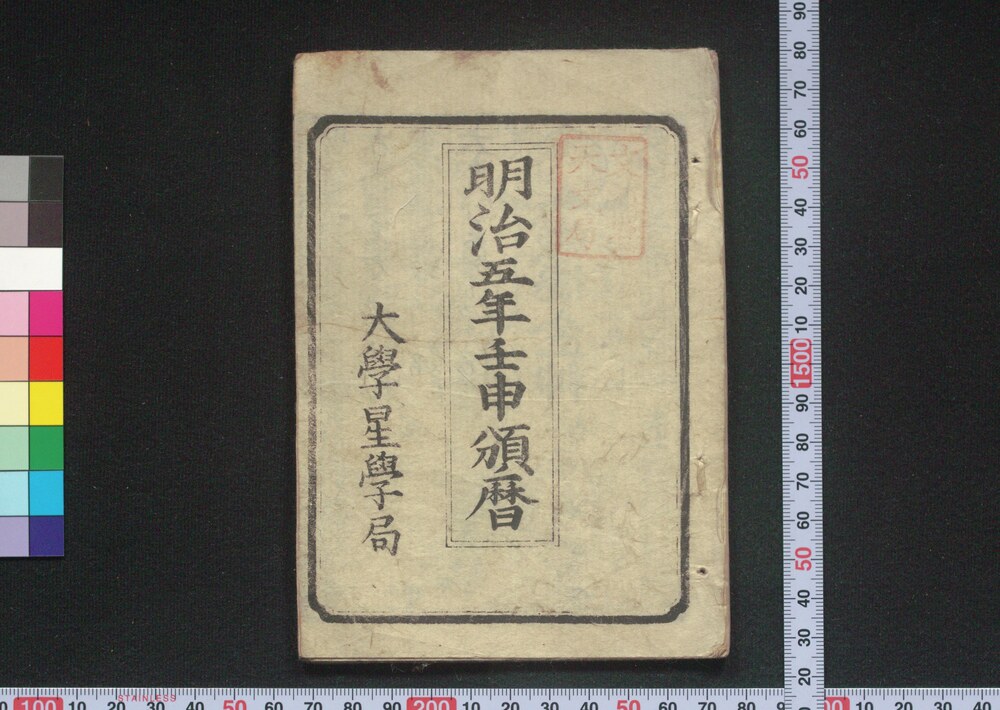 明治五年壬申頒暦
大學星學局
90
80
70
60
50
40
30
20
10
1500
90
80
70
60
50
40
30
20
100
10
20
30
40
50
60
70
80
90
200
10
20
30
40
50
60
70
80
10
20
30
40
STAINLESS